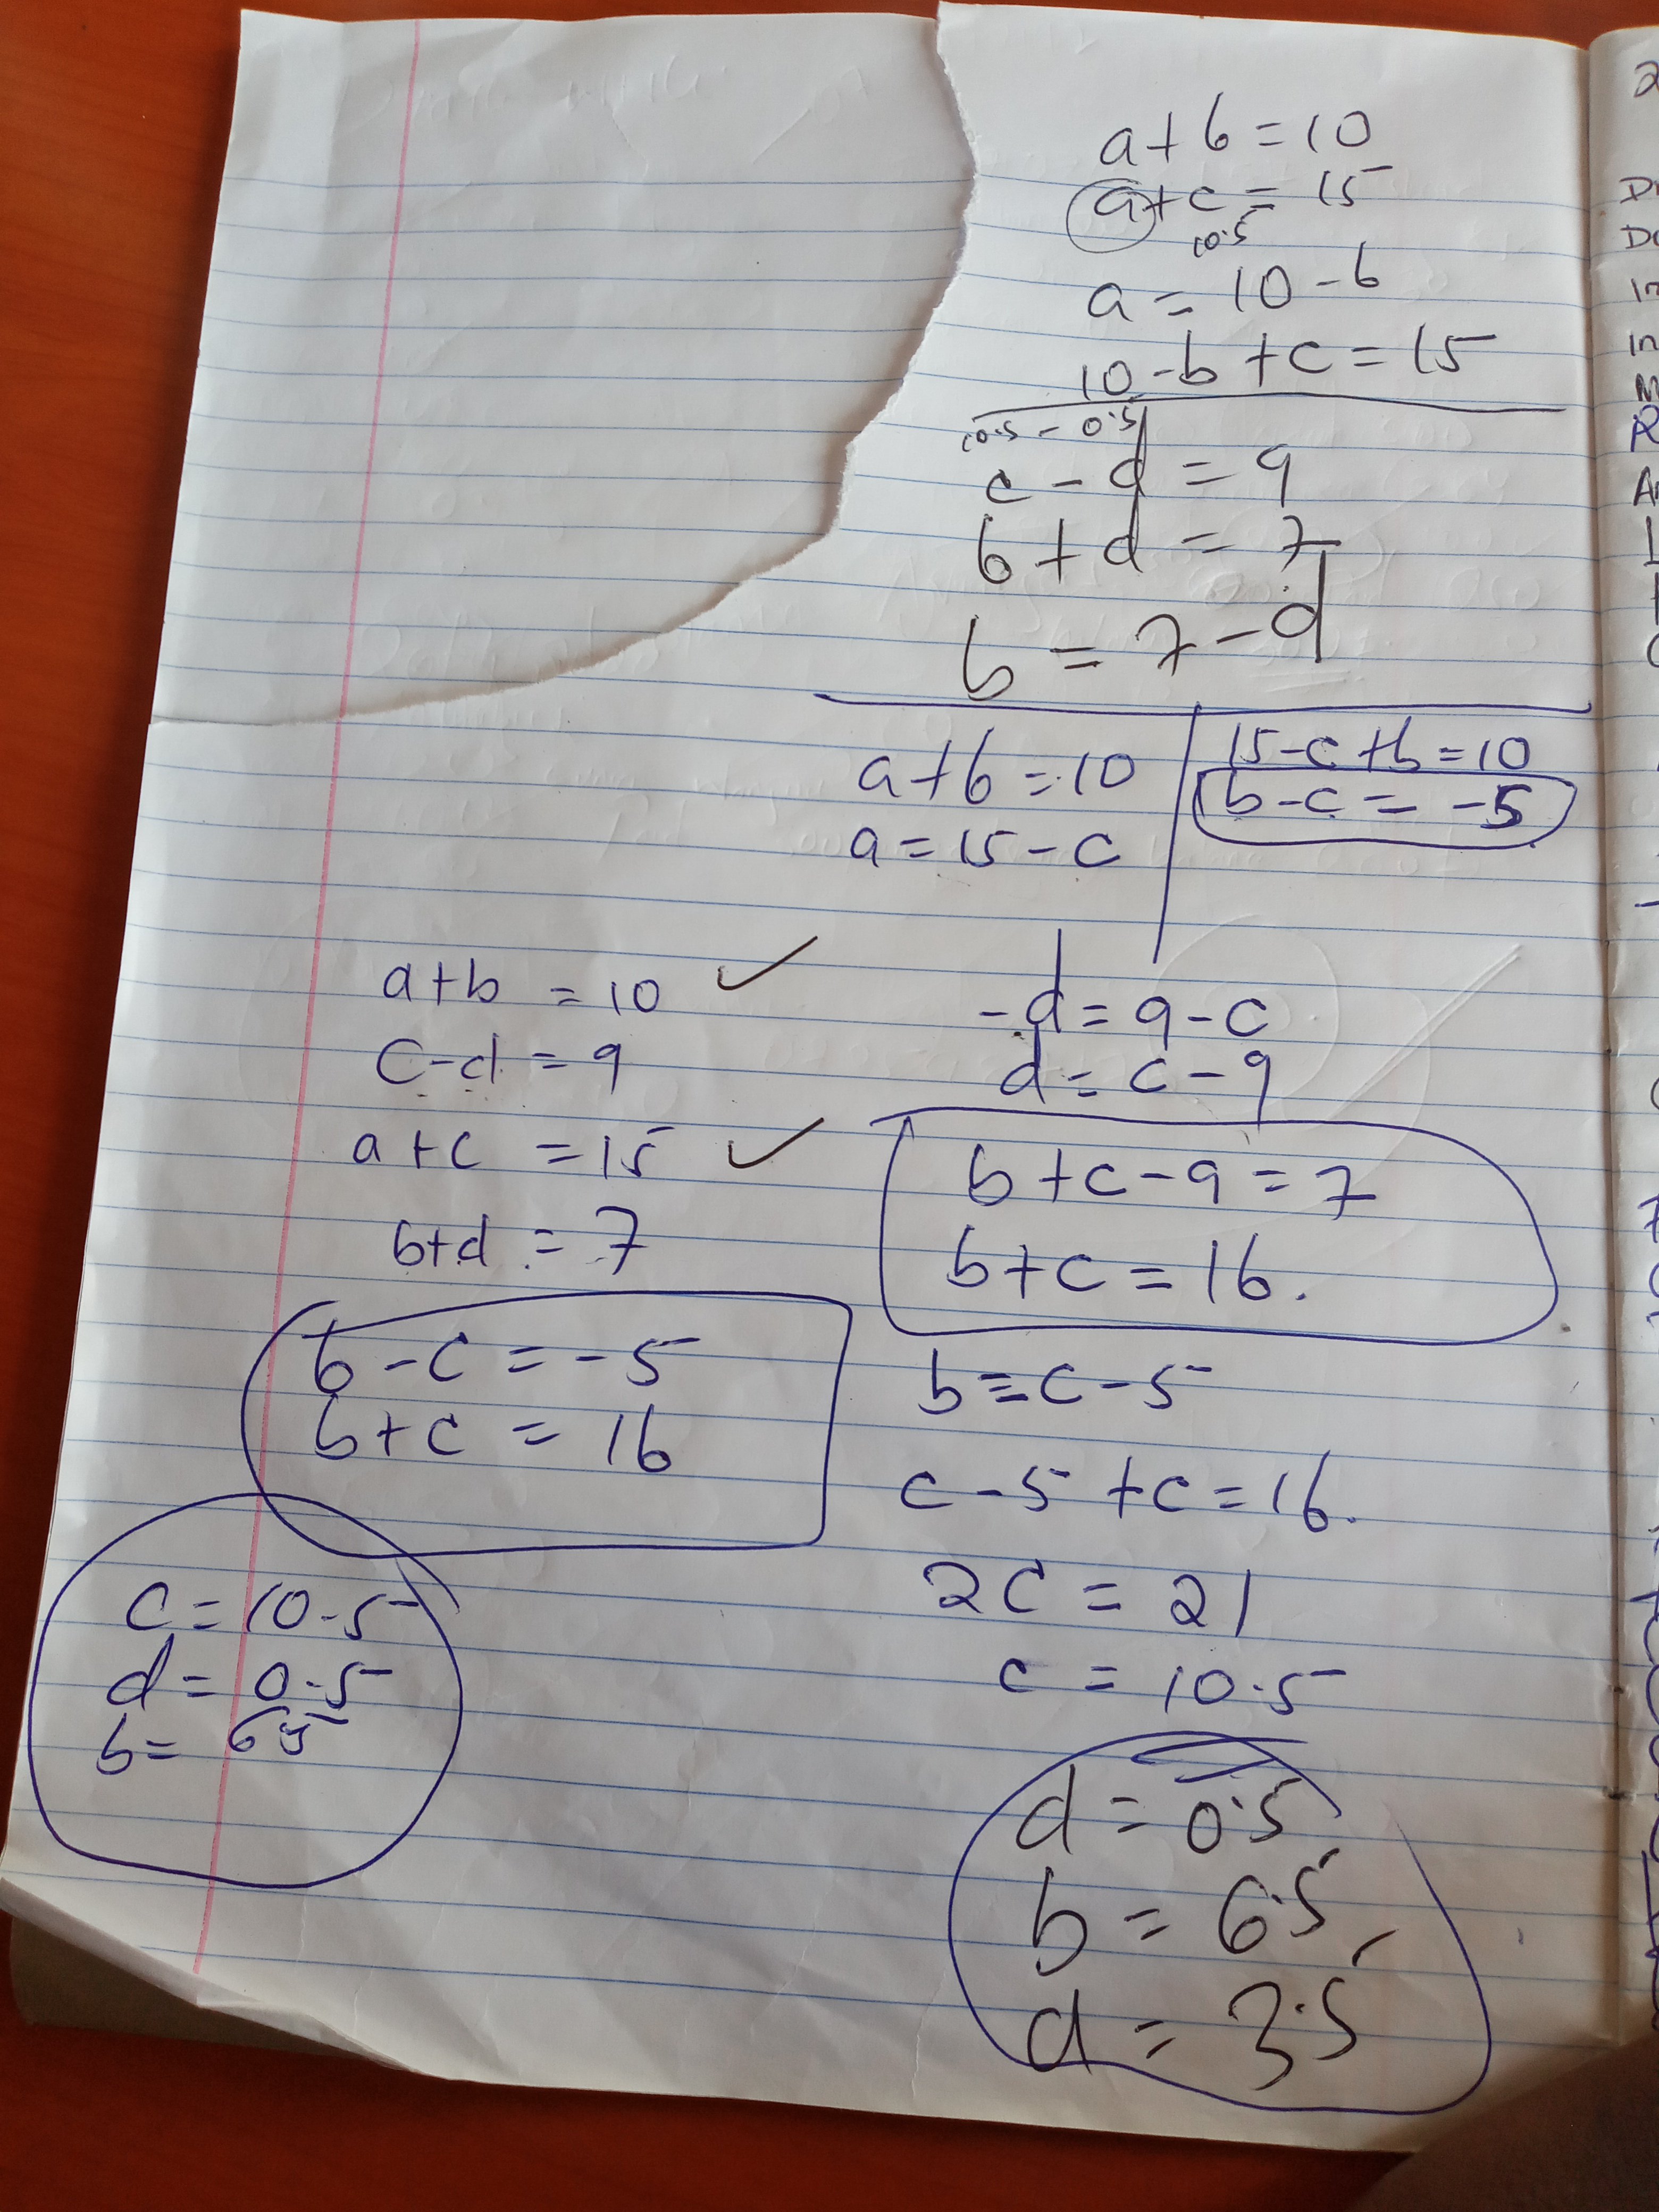 a+b=10
a+c=15
10.5
a=10-b
10-b+c=15
10.5-0.5
c-d=9
b+d=7
b=7-d
a+b=10
a=15-c
15-c+b=10
b-c=-5
a+b=10 ✓
c-d=9
a+c=15 ✓
b+d=7
b-c=-5
b+c=16
c=10.5
d=0.5
b=6.5
-d=9-c
d=c-9
b+c-9=7
b+c=16.
b=c-5
c-5+c=16.
2c=21
c=10.5
d=0.5
b=6.5
d=3.5